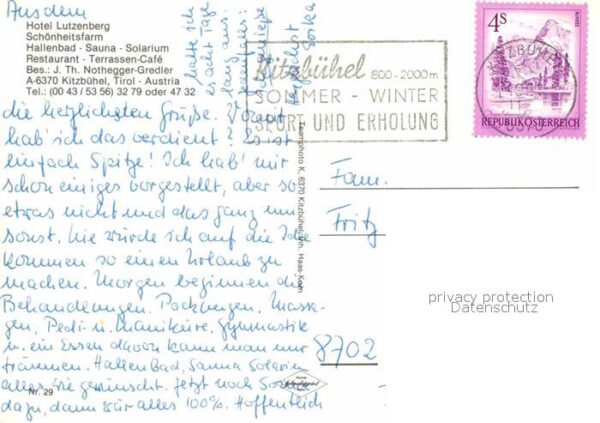 Aus dem
Hotel Lutzenberg
Schönheitsfarm
Hallenbad - Sauna - Solarium
Restaurant - Terrassen-Café
Bes.: J. Th. Nothegger-Gredler
A-6370 Kitzbühel, Tirol - Austria
Tel.: (00 43 / 53 56) 32 79 oder 47 32
die herzlichsten Grüße. Womit
hab' ich das verdient? Es ist
einfach Spitze! Ich hab' mir
schon einiges vorgestellt, aber so
etwas nicht und das ganz um
sonst. Nie würde ich auf die Idee
kommen so einen Urlaub zu
machen. Morgen beginnen die
Behandlungen, Packungen, Massa-
gen, Pedi- u. Maniküre, Gymnastik
u. ein Essen davon kann man nur
träumen. Hallenbad, Sauna Solarium
alles wie gewünscht. Jetzt noch Sonne
dazu, dann wär alles 100%. Hoffentlich
hätte ich
acht Tage
lang aus.
Nr. 29
Kitzbühel 800-2000m
SOMMER - WINTER
SPORT UND ERHOLUNG
4S
REPUBLIK ÖSTERREICH
KITZBÜHEL
6370
Fam.
Fritz
8702
privacy protection
Datenschutz